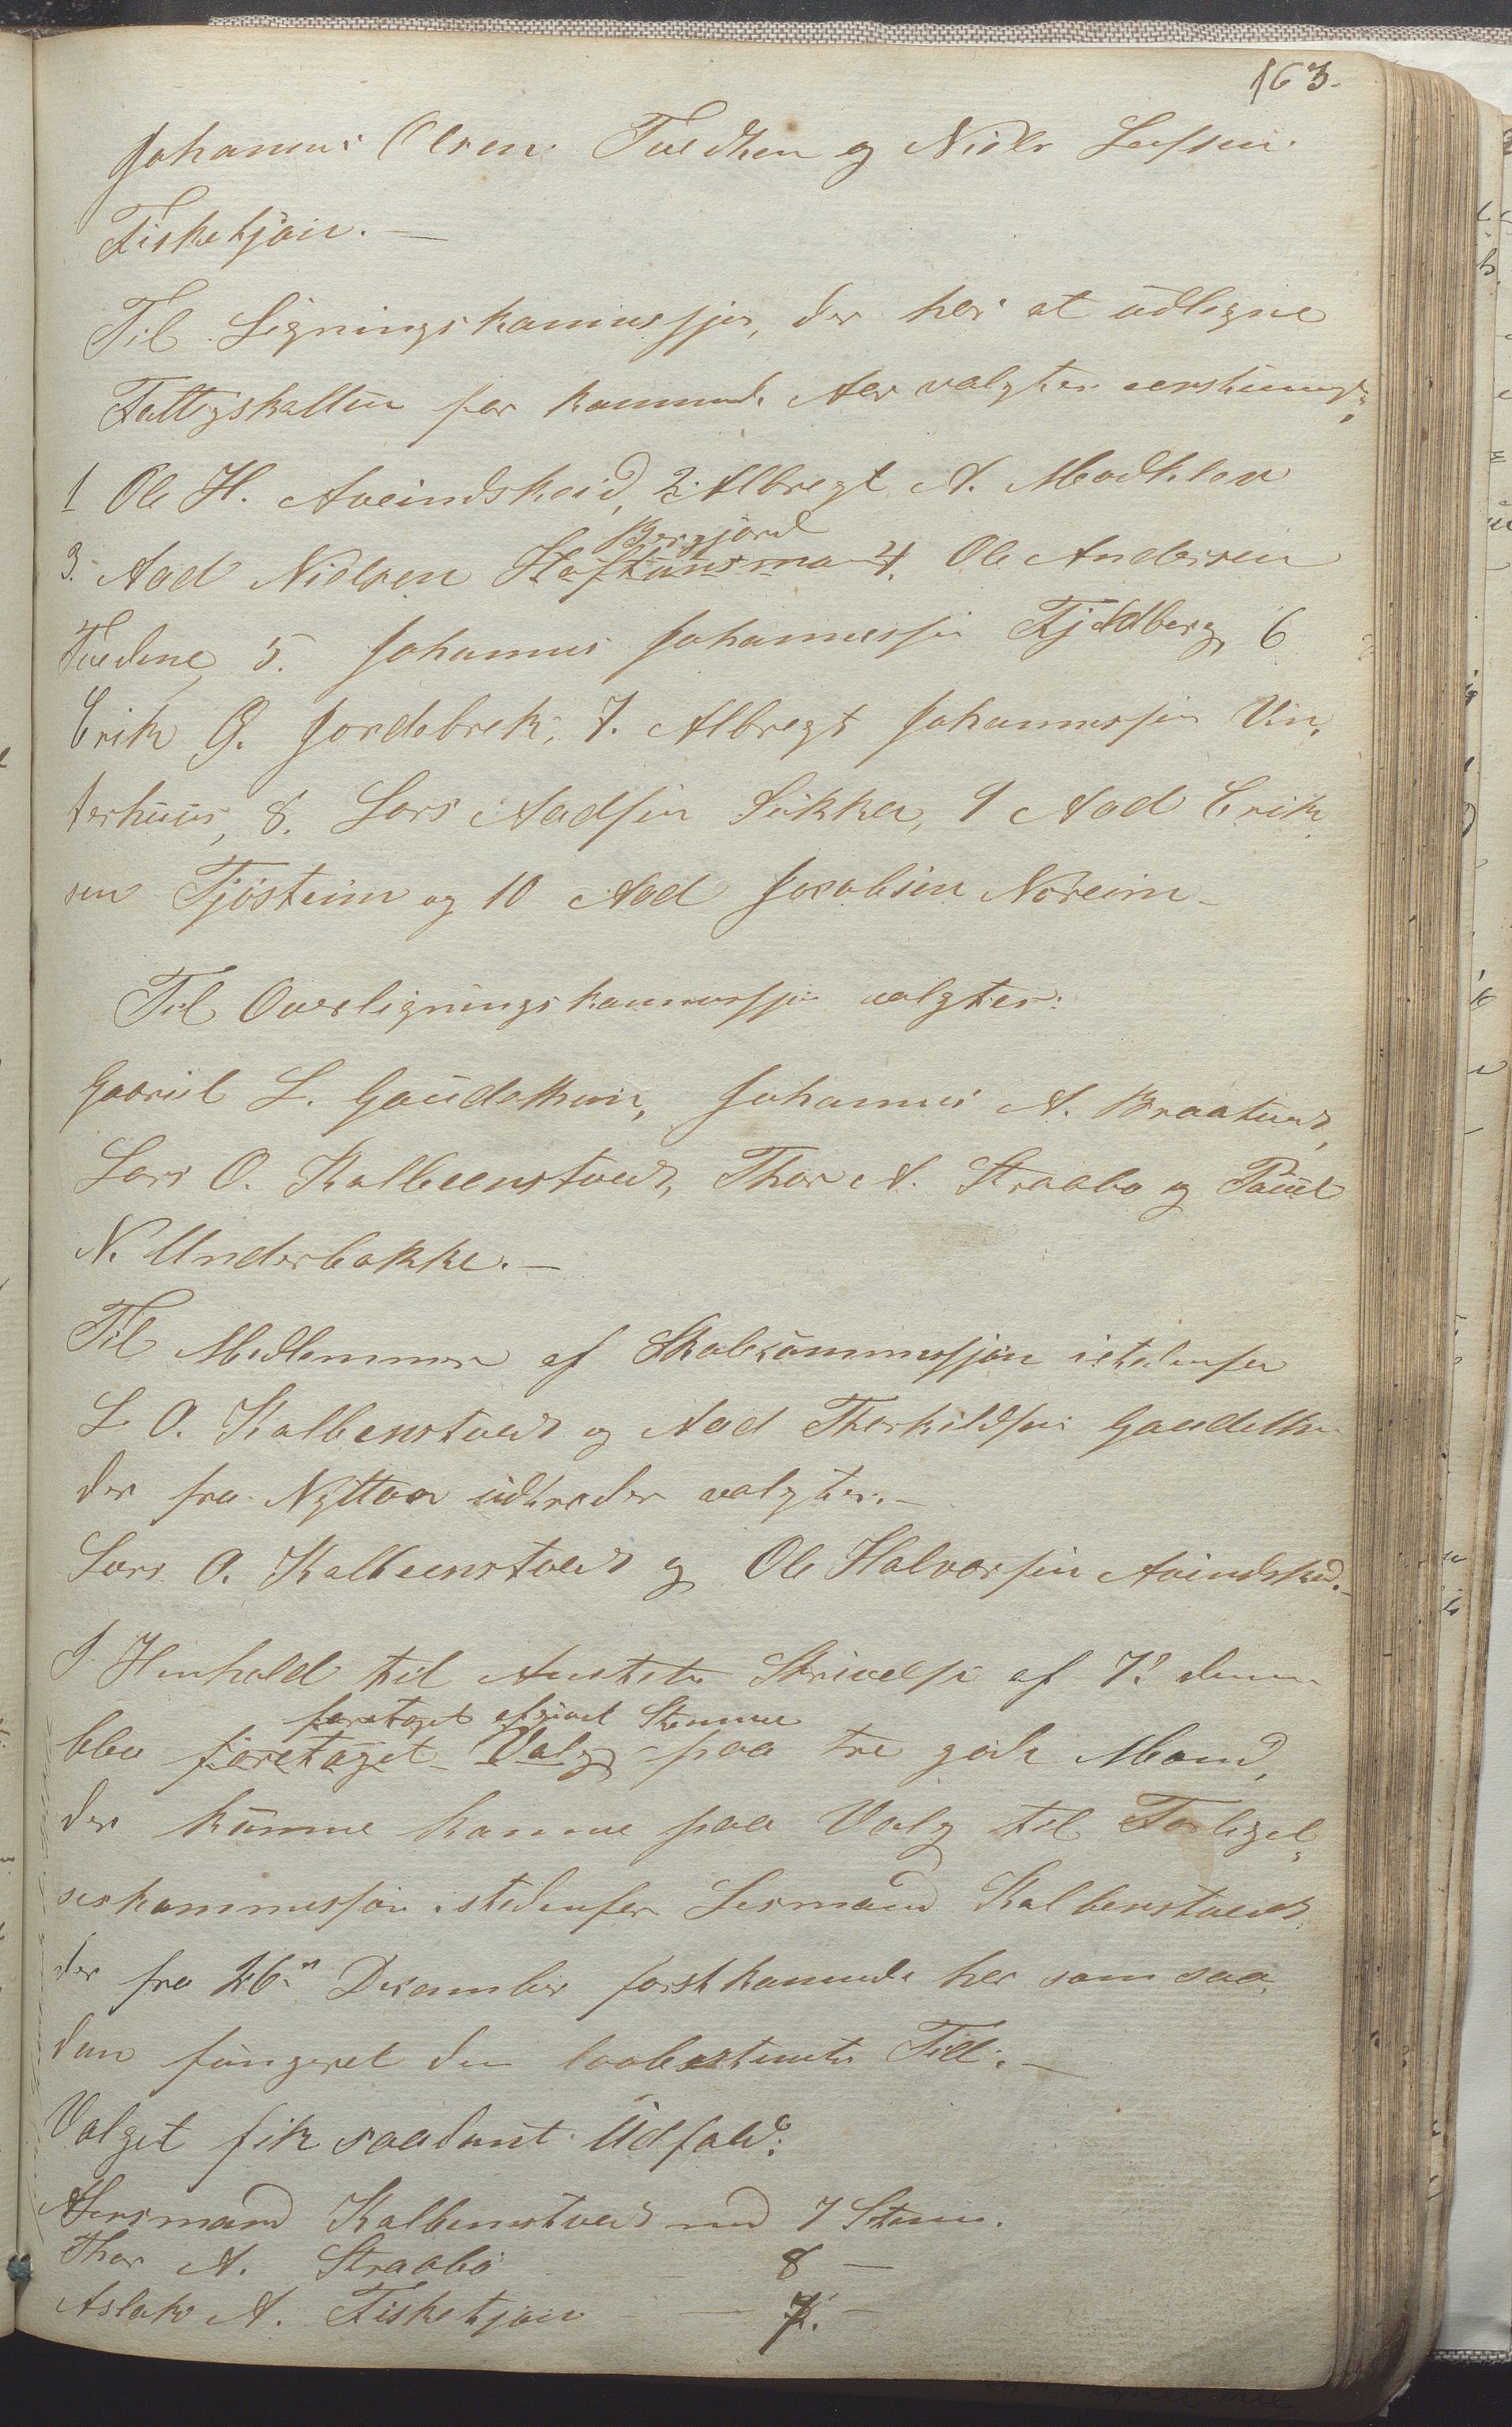 163.
Johannes Olsen Tvedten og Niels Larsen
Fisketjøn. —
Til Ligningskommissjon, der har at udligne
Fattigskatten for kommende Aar valgtes eenstemmigt,
1 Ole H. Aveindskeid, 2. Albregt A. Modtlan
3. Aad Nielsen Haftunsmo Bergjord 4. Ole Andersen
Tvedene, 5. Johannes Johannessen Fjeldberg, 6
Erik G. Jordebrek, 7. Albregt Johannessen Vin,
terhuus, 8. Lars Aadsen Sukka, 9 Aad Erik
sen Tjøsteim og 10 Aad Jacobsen Noreim —
Til Overligningskommissjon valgtes:
Gabriel L. Gaudethun, Johannes A. Braatveit,
Lars O. Kalbeenstvedt, Thor A. Straabø og Paul
N. Underbakke. —
Til Medlemmer af Skolekommissjon istedenfor
L O. Kalbenstvedt og Aad Therkildsen Gaudethun
der fra Nyttaar udtræder valgtes. —
Lars O. Kalbeenstvedt og Ole Halvorsen Aveindskeid. —
I Henhold til Amtets Skrivelse af 7. dennes
blev foretaget Valg foretaget afgivet Stemme paa tre gode Mænd,
der kunne komme paa Valg til Forligel,
seskommissjon istedenfor Lensmand Kalbenstvedt,
der fra 26n December førstkommende har som saa,
dan fungeret den lovbestemte Tid. —
Valget fik saadant Udfald:
Lensmand Kalbenstvedt med 7 Stem.
Thor A. Straabø — 8 —
Aslak A. Fisketjøn — 7. —